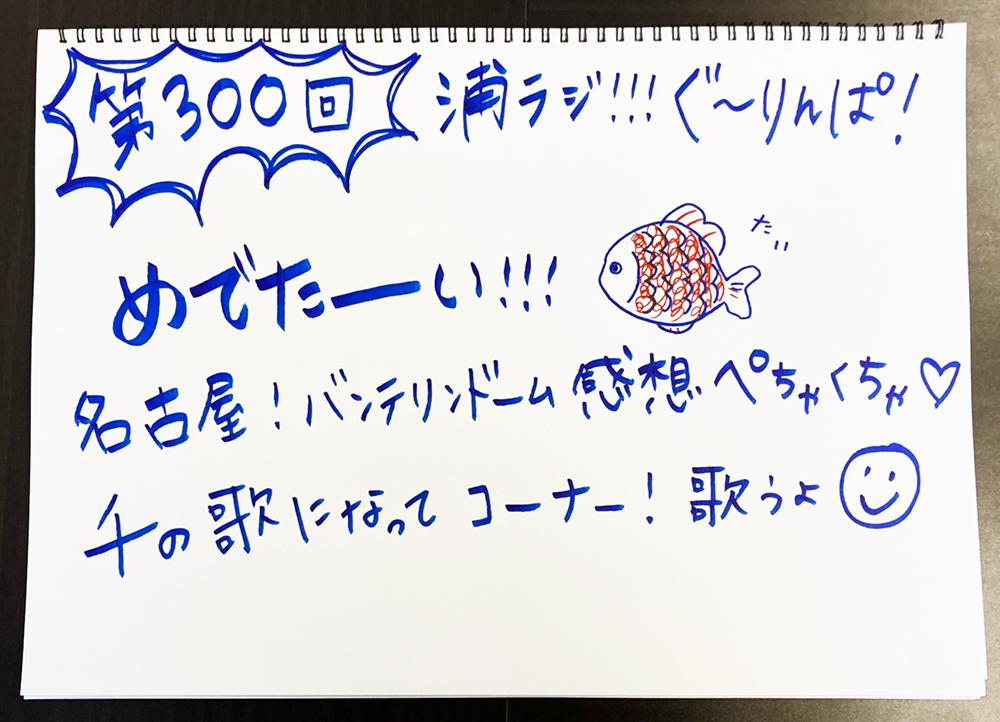 第300回 浦ラジ!!! ぐ〜りんぱ!
めでたーい!!!
たい
名古屋!バンテリンドーム 感想 ぺちゃくちゃ♡
千の歌になって コーナー! 歌うよ